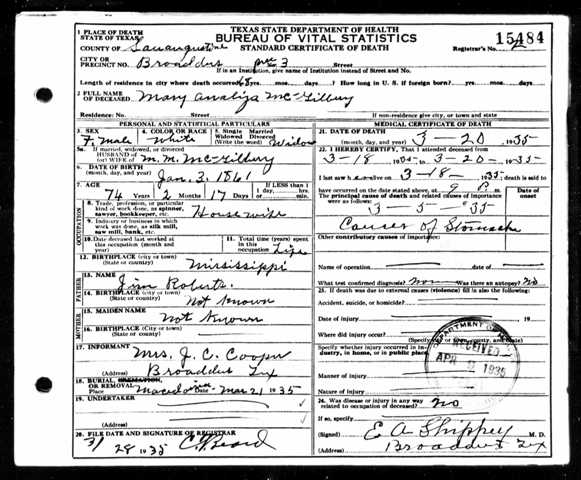 TEXAS STATE DEPARTMENT OF HEALTH
BUREAU OF VITAL STATISTICS
STANDARD CERTIFICATE OF DEATH
15484
Registrar's No. 2
1 PLACE OF DEATH
STATE OF TEXAS
COUNTY OF San augustine
CITY OR
PRECINCT NO. Broaddus Pre No. 3 Street
If in an Institution, give Name of Institution instead of Street and No.
Length of residence in city where death occurred 68 yrs. mos. days? How long in U. S. if foreign born? yrs. mos. days.
2 FULL NAME
OF DECEASED Mary analiza McGilbury
Residence: No. Street
If non-residence give city, or town and state
PERSONAL AND STATISTICAL PARTICULARS
3. SEX
F. Male
4. COLOR OR RACE
White
5. Single Married
Widowed Divorced
(Write the word) Widow
5a. If married, widowed, or divorced
HUSBAND OF
(or) WIFE OF M. M. McGilbury
6. DATE OF BIRTH
(month, day, year) Jan. 3, 1861
7. AGE
74 Years 2 Months 17 Days
If LESS than
1 day, hrs.
min.
OCCUPATION
8. Trade, profession, or particular
kind of work done, as spinner,
sawyer, bookkeeper, etc. Housewife
9. Industry or business in which
work was done, as silk mill,
saw mill, bank, etc.
10. Date deceased last worked at
this occupation (month and
year)
11. Total time (years)
spent in this
occupation Life
12. BIRTHPLACE (city or town)
(State or country) Mississippi
FATHER
13. NAME
Jim Roberts.
14. BIRTHPLACE (City or town)
(State or country) Not known
MOTHER
15. MAIDEN NAME
Not Known
16. BIRTHPLACE (City or town)
(State or country)
17. INFORMANT
Mrs. J. C. Cooper
(Address) Broaddus Tex
18. BURIAL, CREMATION,
OR REMOVAL
Place Date Mar 21 1935
19. UNDERTAKER
(Address)
20. FILE DATE AND SIGNATURE OF REGISTRAR
3/28 1935 C. Beard
MEDICAL CERTIFICATE OF DEATH
21. DATE OF DEATH
(month, day, year) 3-20 1935
22. I HEREBY CERTIFY, That I attended deceased from
3-18- 1935 to 3-20- 1935
I last saw h alive on 3-18- 1935 death is said to
have occurred on the date stated above, at 9 P. m.
The principal cause of death and related causes of importance
were as follows:
Date of
onset
3-5-35
Cancer of Stomache
Other contributory causes of importance:
Name of operation Date of
What test confirmed diagnosis? Was there an autopsy? No
23. If death was due to external causes (violence) fill in also the following:
Accident, suicide, or homicide?
Date of injury 19
Where did injury occur?
(Specify city or town, county, and State)
Specify whether injury occurred in industry, in home, or in public place.
Manner of injury
Nature of injury
24. Was disease or injury in any way
related to occupation of deceased? No
If so, specify
(Signed) E A Shippey M. D.
(Address) Broaddus Tex
RECEIVED
APR 2 1935